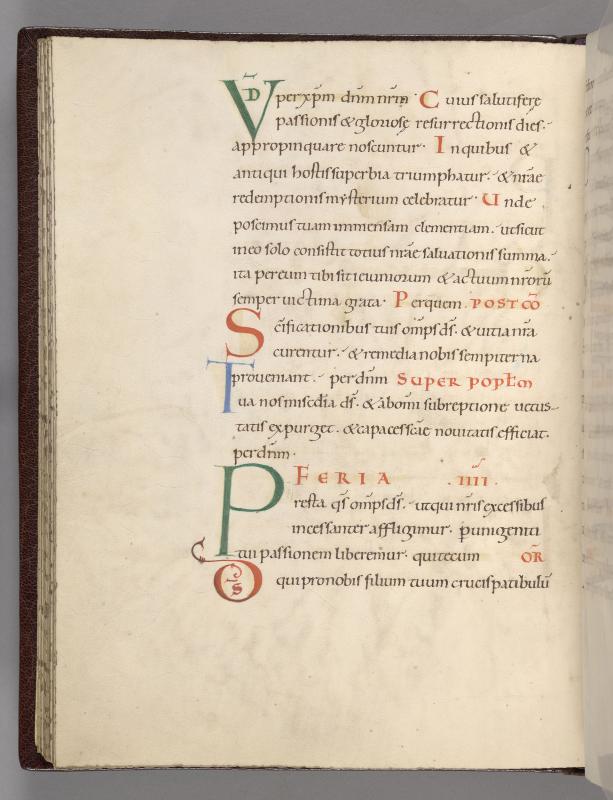 VD p̄ er xp̄m dn̄m nr̄m · Cuius salutiferę
passionis & gloriosę resurrectionis dies·
appropinquare noscuntur· In quibus &
antiqui hostis superbia triumphatur· & nr̄ae
redemptionis mysterium celebratur· Unde
poscimus tuam immensam clementiam· ut sicut
in eo solo consistit totius nr̄ae saluationis summa·
ita per eum tibi sit ieiuniorum & actuum nr̄orū
semper uictima grata· Per quem· POST CŌ
Sc̄ificationibus tuis om̄ps ds̄· & uitia nr̄a
curentur· & remedia nobis sempiterna
proueniant· per dn̄m SUPER POPLM̄
Tua nos mis̄dia ds̄· & ab om̄i subreptione uetus-
tatis expurget· & capaces sc̄ae nouitatis efficiat·
per dn̄m·
FERIA ·IIII·
Presta qs̄ om̄ps ds̄· ut qui nr̄is excessibus
incessanter affligimur· p̄ unigeniti
tui passionem liberemur· qui tecum OR̄
Ds̄ qui pro nobis filium tuum crucis patibulū